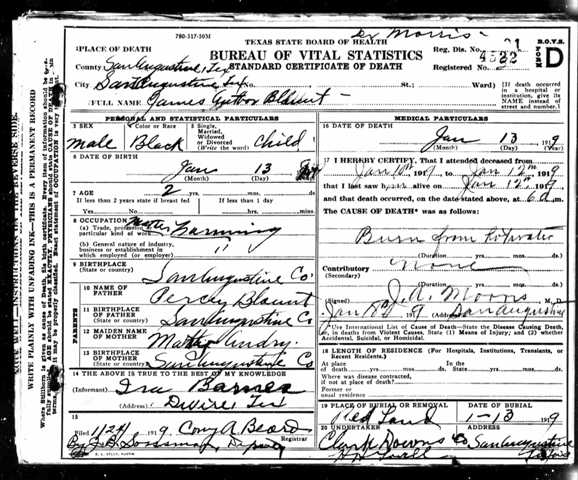 780-317-303M
Dr Morris
TEXAS STATE BOARD OF HEALTH
BUREAU OF VITAL STATISTICS
STANDARD CERTIFICATE OF DEATH
Reg. Dis. No.
21
4522
Registered No.
B.O.V.S.
FORM D
PLACE OF DEATH
County San Augustine, Tex
City San Augustine Tex No. St.; Ward)
[If death occurred in a hospital or institution, give its NAME instead of street and number.
FULL NAME James Blount
WRITE PLAINLY WITH UNFADING INK—THIS IS A PERMANENT RECORD
PERSONAL AND STATISTICAL PARTICULARS
3 SEX Male
4 Color or Race Black
5 Single, Married, Widowed or Divorced (Write the word) Child
6 DATE OF BIRTH
Jan 13
(Month) (Day)
7 AGE 2
If less than 2 years state if breast fed If less than 1 day
Yes No hrs. min.
8 OCCUPATION
(a) Trade, profession or particular kind of work Farming
(b) General nature of industry, business or establishment in which employed (or employer) "
9 BIRTHPLACE
(State or country) San Augustine Co.
10 NAME OF FATHER Percy Blount
11 BIRTHPLACE OF FATHER
(State or country) San Augustine Co
12 MAIDEN NAME OF MOTHER Andry
13 BIRTHPLACE OF MOTHER
(State or country) San Augustine Co
PARENTS
14 THE ABOVE IS TRUE TO THE BEST OF MY KNOWLEDGE
(Informant) Ira Barnes
(Address) Tex
15
Filed 1/24 1919 Cony A Beard
Registrar
By Deputy
MEDICAL PARTICULARS
16 DATE OF DEATH
Jan 13 1919
17 I HEREBY CERTIFY, That I attended deceased from
Jan 10th 1919 to Jan 12th 1919
that I last saw him alive on Jan 12th 1919
and that death occurred, on the date stated above, at 6 a m.
The CAUSE OF DEATH* was as follows:
Burn from hot water
(Duration) yrs. mos. ds.
Contributory none
(Secondary)
(Duration) yrs. mos. ds.
(Signed) M. D.
Jan 1919 (Address) San Augustine
*Use International List of Cause of Death—State the Disease Causing Death, or, in deaths from Violent Causes, State (1) Means of Injury; and (2) whether Accidental, Suicidal, or Homicidal.
18 LENGTH OF RESIDENCE (For Hospitals, Institutions, Transients, or Recent Residents.)
At place of death yrs. mos. ds. In the State yrs. mos. ds.
Where was disease contracted, if not at place of death?
Former or usual residence
19 PLACE OF BURIAL OR REMOVAL DATE OF BURIAL
Red Land 1-13 1919
20 UNDERTAKER
Clark Downs Co San Augustine
Texas